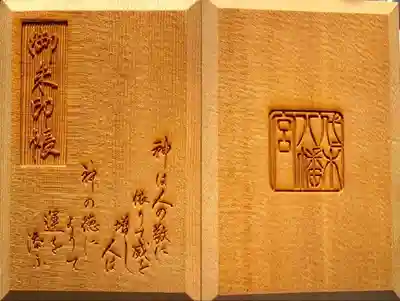 御朱印帳
神は人の敬に
依りて威を
増し
人は
神の徳に
よりて
運を
添ふ
代々木
八幡
宮